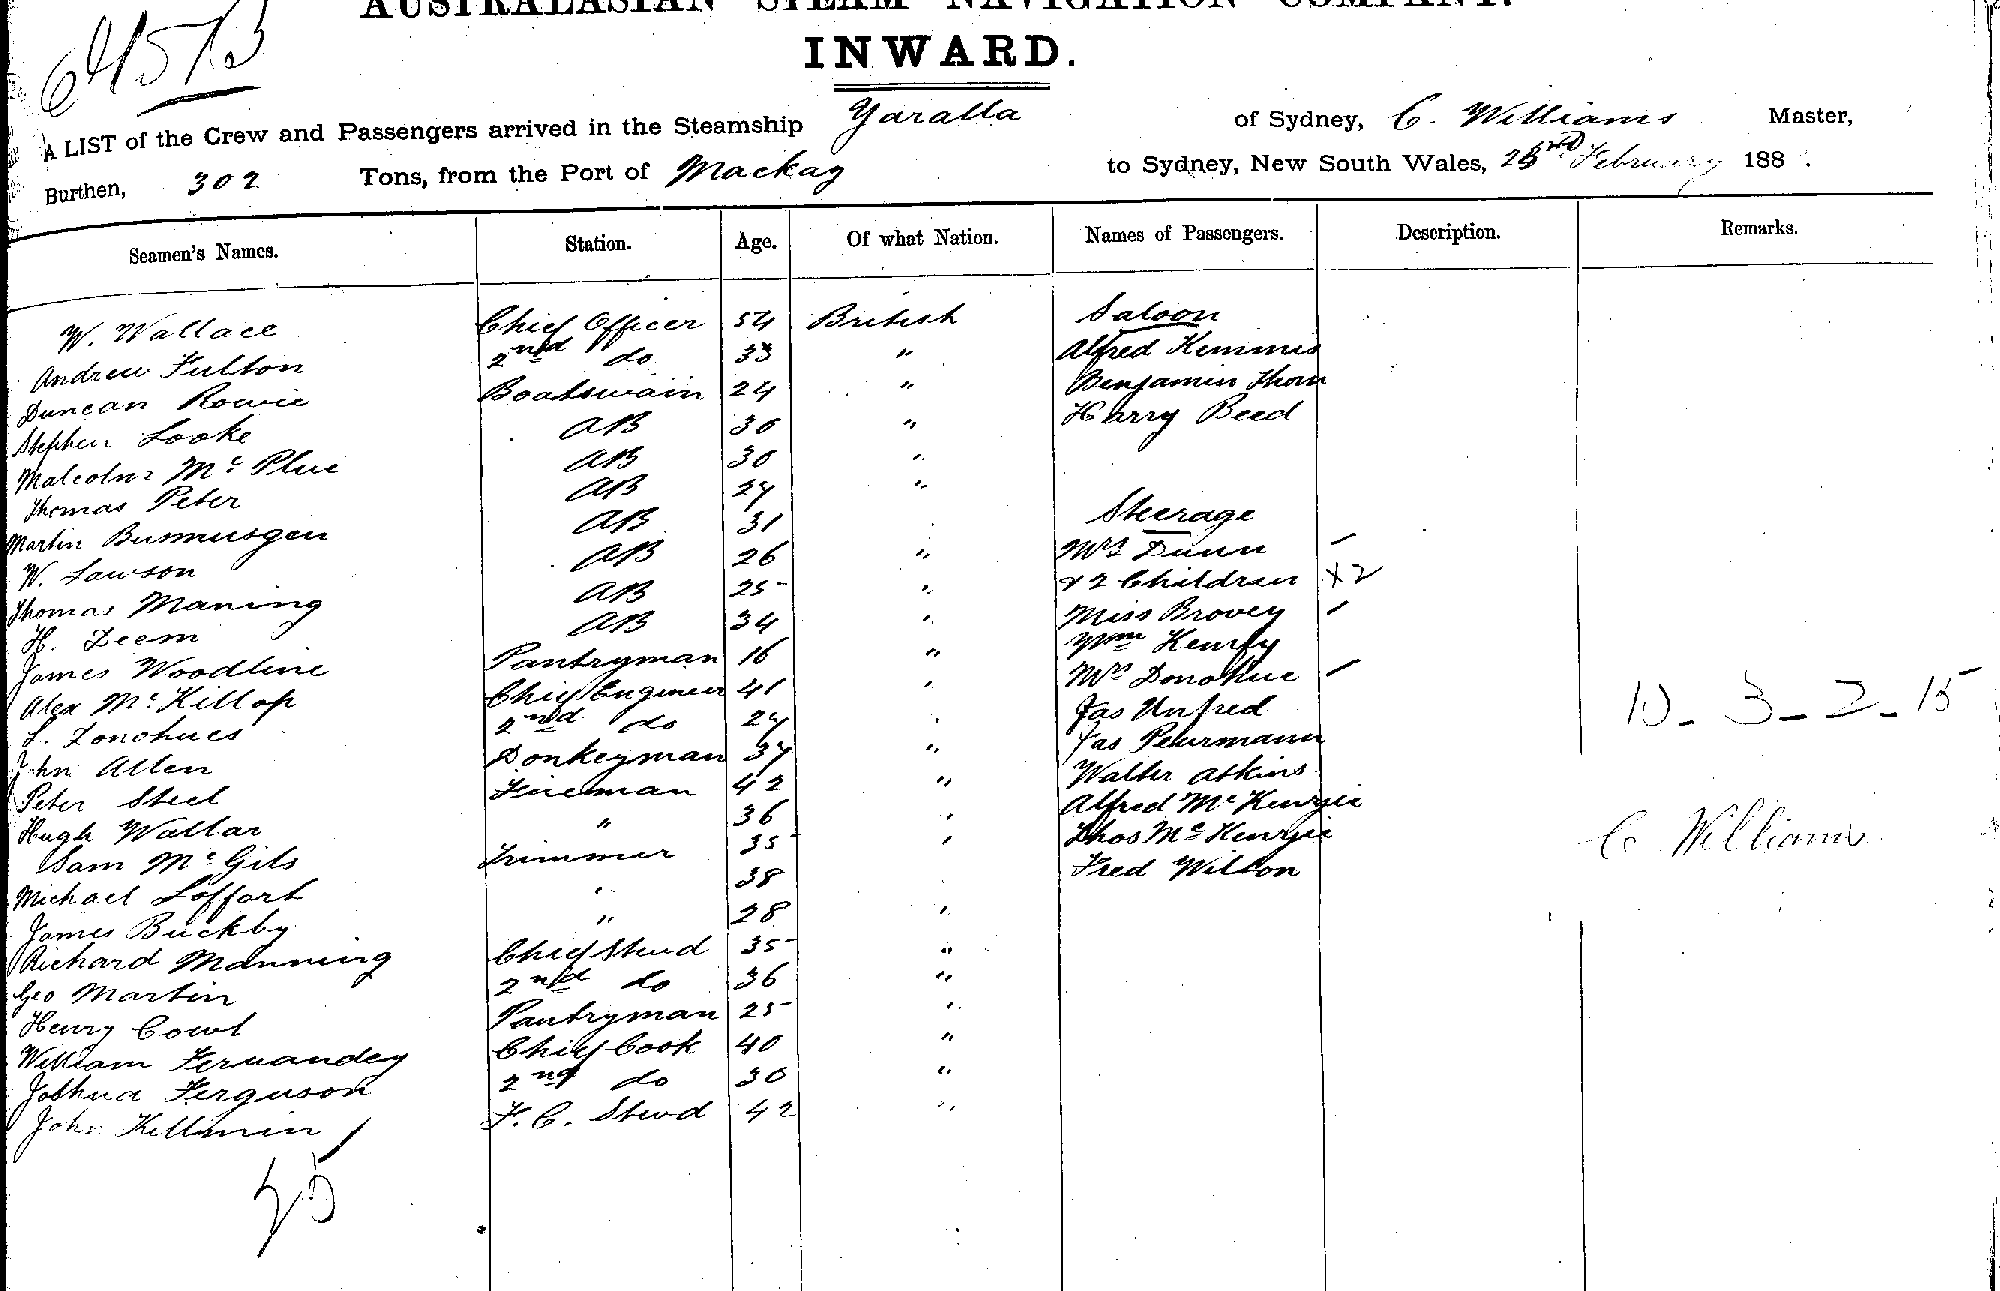 AUSTRALASIAN STEAM NAVIGATION COMPANY.
INWARD.
A LIST of the Crew and Passengers arrived in the Steamship Yaralla of Sydney, C. Williams Master,
Burthen, 302 Tons, from the Port of Mackay to Sydney, New South Wales, February 188 .
Seamen's Names. Station. Age. Of what Nation. Names of Passengers. Description. Remarks.
W. Wallace Chief Officer 54 British Saloon
Andrew Fulton 2nd do 33 " Alfred Kemmis
Duncan Rowie Boatswain 24 " Benjamin Thorn
Stephen Looke AB 30 " Harry Beed
Malcolm Mc Phee AB 30 "
Thomas Peter AB 27 "
Martin AB 31 Steerage
W. Lawson AB 26 " Mrs Dunn
Thomas Maning AB 25 " & 2 Children X2
H. Deem AB 34 " Miss Brovey
James Woodline Pantryman 16 " Wm Henry
Alex Mc Killop Chief Engineer 41 " Mrs Donohue
L. Donohues 2nd do 27 " Jas Unfred
John Allen Donkeyman 37 " Jas
Peter Steel Fireman 42 " Walter Atkins
Hugh Wallar " 36 " Alfred Mc Kenzie
Sam Mc Gils Trimmer 35 " Thos Mc Kenzie
Michael Loffort " 38 Fred Wilson
James Buckby " 28 "
Richard Manning Chief Stewd 35 "
Geo Martin 2nd do 36 "
Henry Cowl Pantryman 25 "
William Fernandey Chief Cook 40 "
Joshua Ferguson 2nd do 30 "
John Killmin F. C. Stewd 42 "
10 - 3 - 2 - 15
C Williams
25